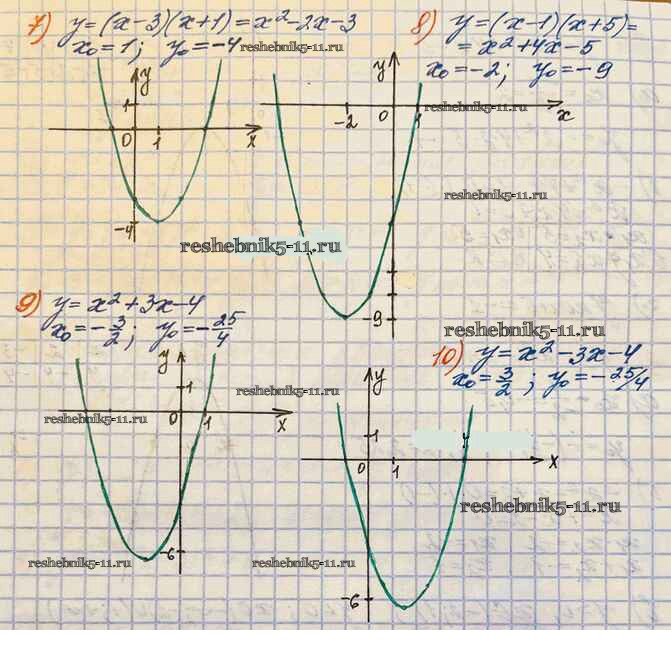 7) y = (x-3)(x+1) = x² - 2x - 3
x₀ = 1; y₀ = -4
reshebnik5-11.ru
y
1
0
1
x
-4
reshebnik5-11.ru
8) y = (x-1)(x+5) =
= x² + 4x - 5
x₀ = -2; y₀ = -9
reshebnik5-11.ru
y
-2
0
1
x
reshebnik5-11.ru
-9
reshebnik5-11.ru
9) y = x² + 3x - 4
x₀ = -3/2; y₀ = -25/4
y
1
reshebnik5-11.ru
reshebnik5-11.ru
0
1
x
-6
reshebnik5-11.ru
10) y = x² - 3x - 4
x₀ = 3/2; y₀ = -25/4
y
1
0
1
x
reshebnik5-11.ru
reshebnik5-11.ru
-6